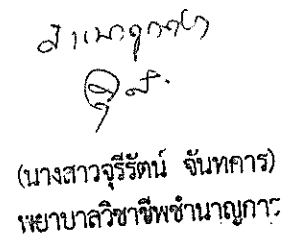 สำเนาถูกต้อง
(นางสาวจุรีรัตน์ จันทคาร)
พยาบาลวิชาชีพชำนาญการ